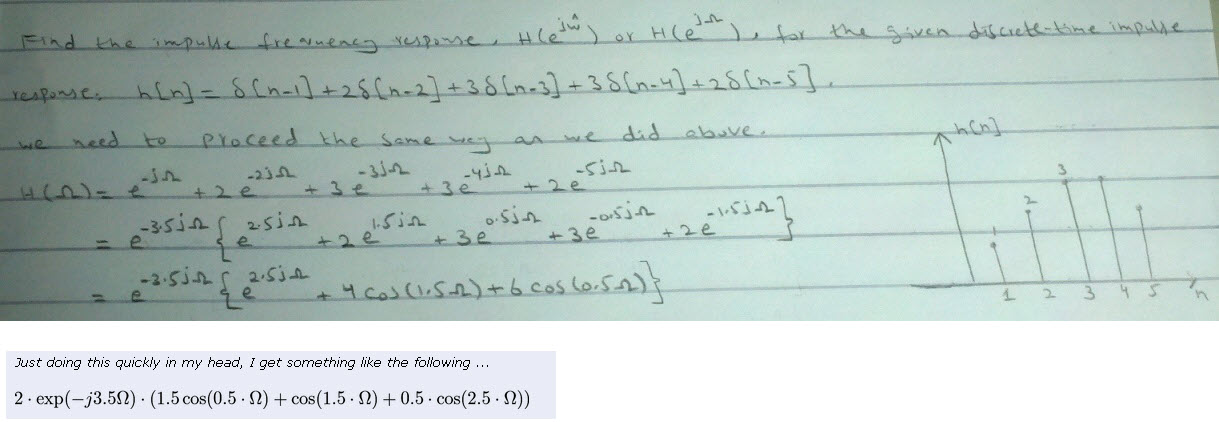 Find the impulse frequency response, H(e^{jω̂}) or H(e^{jΩ}), for the given discrete-time impulse
response: h[n] = δ[n-1] + 2δ[n-2] + 3δ[n-3] + 3δ[n-4] + 2δ[n-5].
we need to proceed the same way as we did above.
H(Ω) = e^{-jΩ} + 2e^{-2jΩ} + 3e^{-3jΩ} + 3e^{-4jΩ} + 2e^{-5jΩ}
= e^{-3.5jΩ} { e^{2.5jΩ} + 2e^{1.5jΩ} + 3e^{0.5jΩ} + 3e^{-0.5jΩ} + 2e^{-1.5jΩ} }
= e^{-3.5jΩ} { e^{2.5jΩ} + 4cos(1.5Ω) + 6cos(0.5Ω) }
h[n]
1 2 3
1 2 3 4 5 n
Just doing this quickly in my head, I get something like the following ...
2 · exp(−j3.5Ω) · (1.5 cos(0.5 · Ω) + cos(1.5 · Ω) + 0.5 · cos(2.5 · Ω))